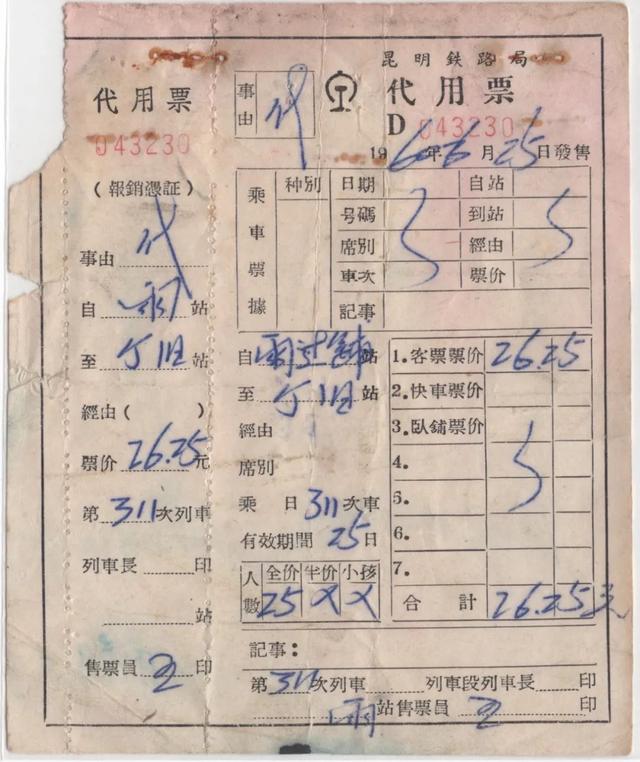 代用票
043230
(報銷憑証)
事由 代
自 雨 站
至 个旧 站
經由( )
票价 26.25 元
第 311 次列車
列車長 印
站
售票員 王 印
昆明鉄路局
事由 代
代用票
D 043230
19 年6月25日發售
乘車票據
种別
日期
自站
号碼
到站
席別
經由
車次
票价
記事
自 雨过鋪 站
至 个旧 站
經由
席別
乘 日 311 次車
有效期間 25 日
人數
全价 半价 小孩
25 X X
1.客票票价 26.25
2.快車票价
3.臥鋪票价
4.
5.
6.
7.
合計 26.25元
記事:
第 311 次列車 列車段列車長 印
雨 站售票員 王 印